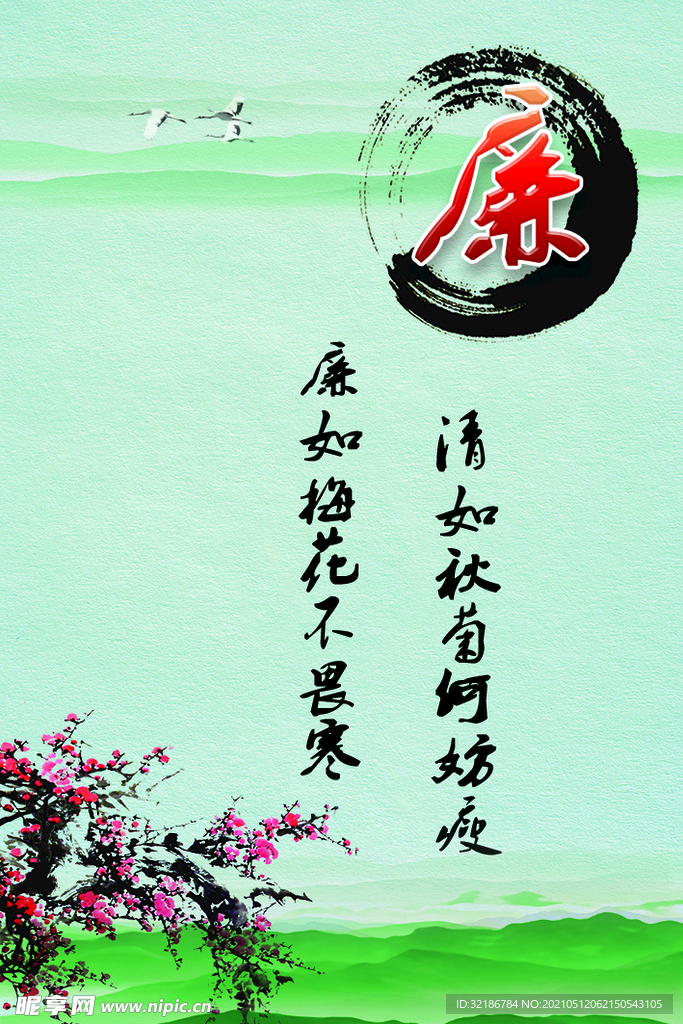 廉
清如秋菊何妨瘦
廉如梅花不畏寒
昵享网 www.nipic.cn
ID:32186784 NO:20210512062150543105